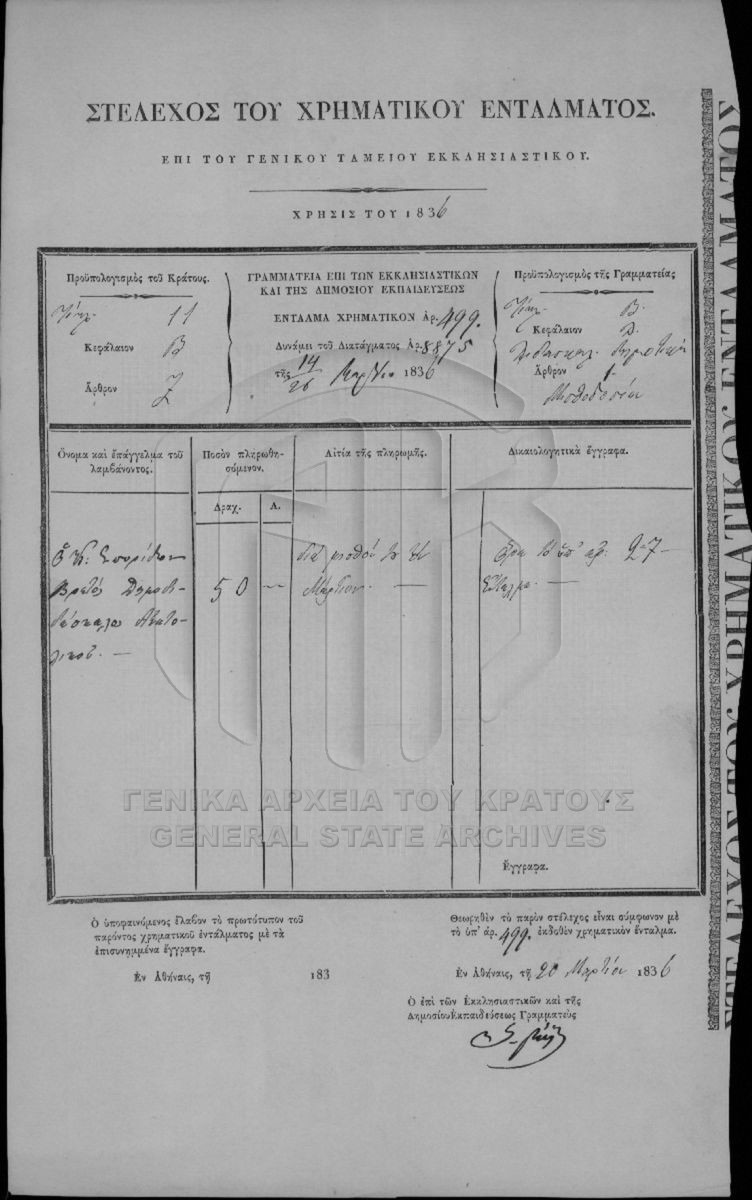 ΣΤΕΛΕΧΟΣ ΤΟΥ ΧΡΗΜΑΤΙΚΟΥ ΕΝΤΑΛΜΑΤΟΣ.
ΕΠΙ ΤΟΥ ΓΕΝΙΚΟΥ ΤΑΜΕΙΟΥ ΕΚΚΛΗΣΙΑΣΤΙΚΟΥ.
ΧΡΗΣΙΣ ΤΟΥ 1836
Προϋπολογισμὸς τοῦ Κράτους.
11
Κεφάλαιον
Β
Ἄρθρον
Ζ
ΓΡΑΜΜΑΤΕΙΑ ΕΠΙ ΤΩΝ ΕΚΚΛΗΣΙΑΣΤΙΚΩΝ
ΚΑΙ ΤΗΣ ΔΗΜΟΣΙΟΥ ΕΚΠΑΙΔΕΥΣΕΩΣ
ΕΝΤΑΛΜΑ ΧΡΗΜΑΤΙΚΟΝ Ἀρ. 499.
Δυνάμει τοῦ Διατάγματος Ἀρ. 8875
τῆς 14/26 1836
Προϋπολογισμὸς τῆς Γραμματείας
Β.
Κεφάλαιον
Ἄρθρον
Μισθοδοσία
Ὄνομα καὶ ἐπάγγελμα τοῦ
λαμβάνοντος.
Ποσὸν πληρωθη-
σόμενον.
Δραχ. Λ.
Αἰτία τῆς πληρωμῆς.
Δικαιολογητικὰ ἔγγραφα.
Ὁ Κ: Σπυρίδων
Βρετὸς Δημοδι-
δάσκαλος Ἀνατο-
λικοῦ. —
50 —
διὰ μισθόν
Μάρτιον. —
ὑπ' ἀρ. 27 —
ἔνταλμα. —
Ἔγγραφα.
ΓΕΝΙΚΑ ΑΡΧΕΙΑ ΤΟΥ ΚΡΑΤΟΥΣ
GENERAL STATE ARCHIVES
Ὁ ὑποφαινόμενος ἔλαβον τὸ πρωτότυπον τοῦ
παρόντος χρηματικοῦ ἐντάλματος μὲ τὰ
ἐπισυνημμένα ἔγγραφα.
Ἐν Ἀθήναις, τῇ 183
Θεωρηθὲν τὸ παρὸν στέλεχος εἶναι σύμφωνον μὲ
τὸ ὑπ' ἀρ. 499. ἐκδοθὲν χρηματικὸν ἔνταλμα.
Ἐν Ἀθήναις, τῇ 20 Μαρτίου 1836
Ὁ ἐπὶ τῶν Ἐκκλησιαστικῶν καὶ τῆς
Δημοσίου Ἐκπαιδεύσεως Γραμματεὺς
ΣΤΕΛΕΧΟΣ ΤΟΥ ΧΡΗΜΑΤΙΚΟΥ ΕΝΤΑΛΜΑΤΟΣ